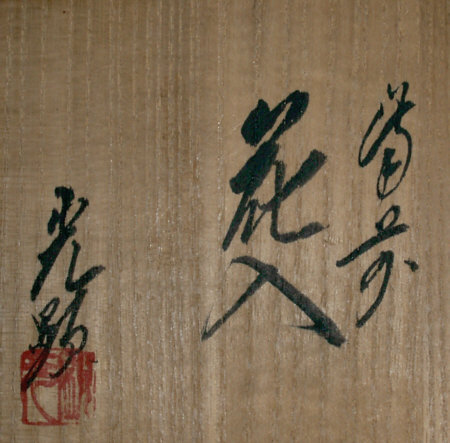 備前
花入
光